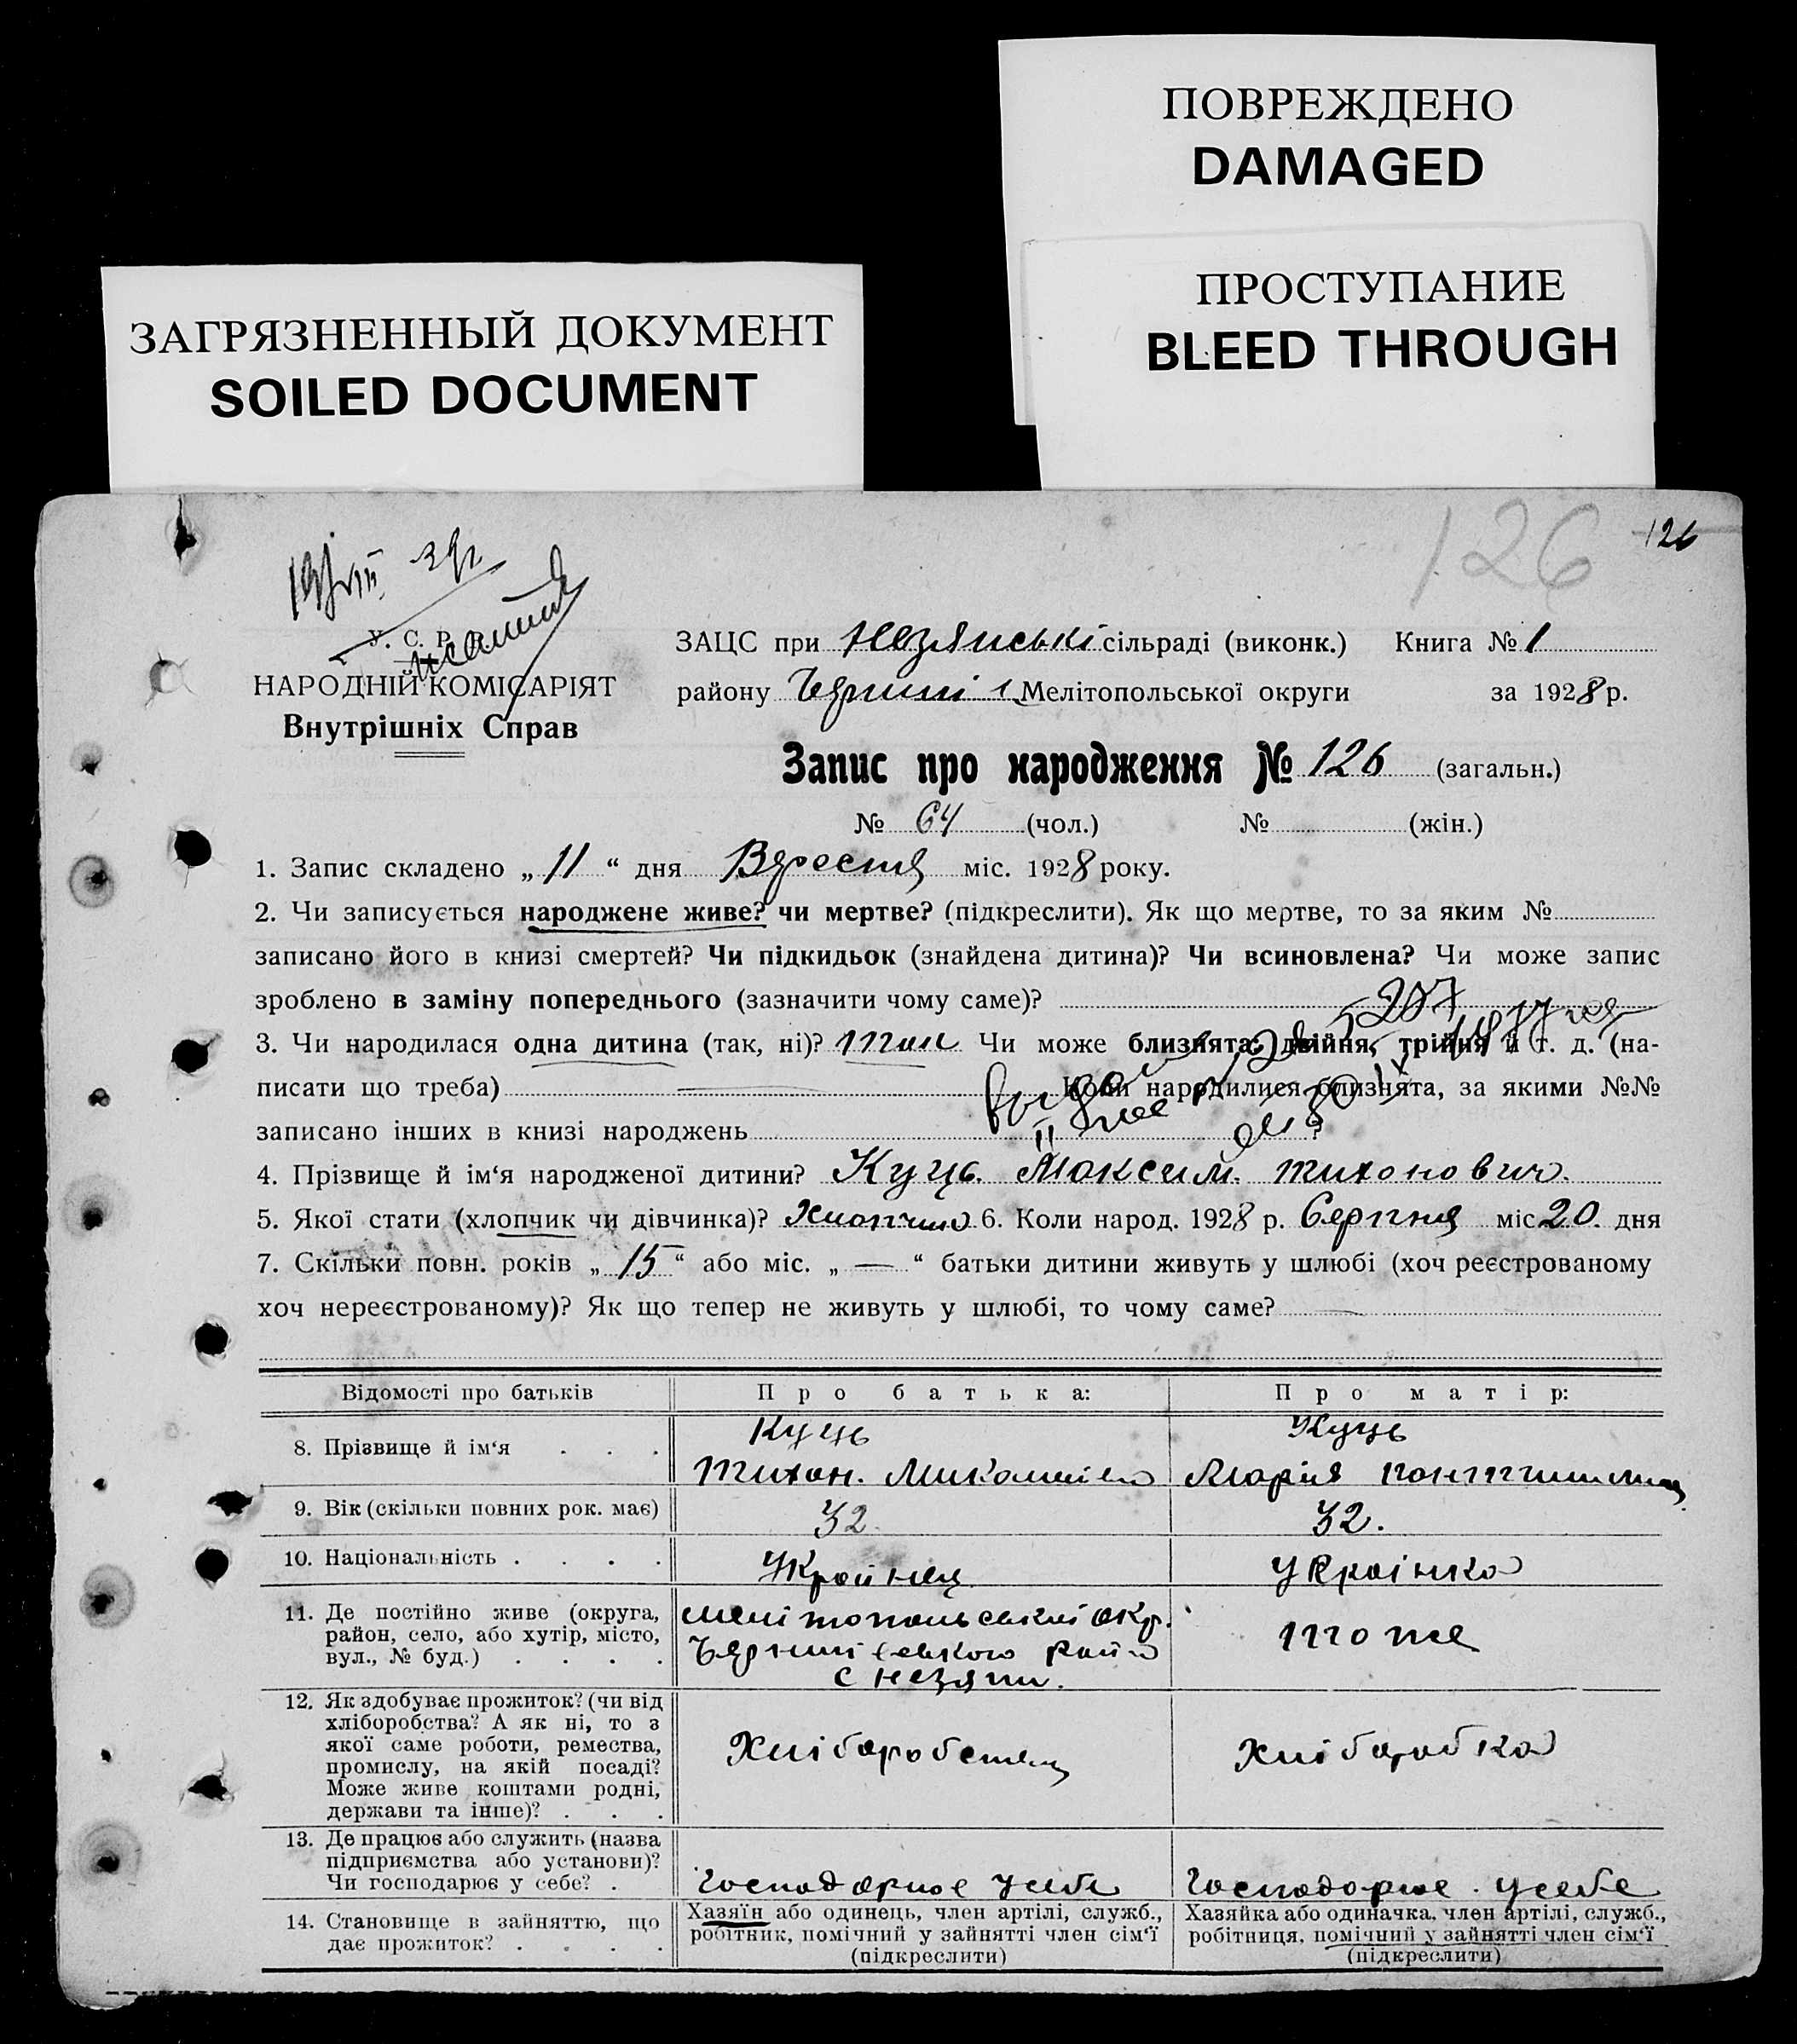 ПОВРЕЖДЕНО
DAMAGED
ПРОСТУПАНИЕ
BLEED THROUGH
ЗАГРЯЗНЕННЫЙ ДОКУМЕНТ
SOILED DOCUMENT
126
126
У. С. Р. Р.
НАРОДНІЙ КОМІСАРІЯТ
Внутрішніх Справ
ЗАЦС при сільраді (виконк.) Книга № 1
району Мелітопольської округи за 1928 р.
Запис про народження № 126 (загальн.)
№ 64 (чол.) № (жін.)
1. Запис складено „ 11 “ дня Вересня міс. 1928 року.
2. Чи записується народжене живе? чи мертве? (підкреслити). Як що мертве, то за яким №
записано його в книзі смертей? Чи підкидьок (знайдена дитина)? Чи всиновлена? Чи може запис
зроблено в заміну попереднього (зазначити чому саме)?
3. Чи народилася одна дитина (так, ні)? Чи може близнята: двійня, трійня й т. д. (на-
писати що треба) Коли народилися близнята, за якими №№
записано інших в книзі народжень ?
4. Прізвище й ім‘я народженої дитини? Куць Максим Тихонович.
5. Якої стати (хлопчик чи дівчинка)? Хлопчик 6. Коли народ. 1928 р. Серпня міс 20. дня
7. Скільки повн. років „ 15 “ або міс. „ — “ батьки дитини живуть у шлюбі (хоч реєстрованому
хоч нереєстрованому)? Як що тепер не живуть у шлюбі, то чому саме?
Відомості про батьків Про батька: Про матір:
8. Прізвище й ім‘я
Куць
Тихон
Куць
Марія
9. Вік (скільки повних рок. має) 32 32.
10. Національність Українець Українка
11. Де постійно живе (округа,
район, село, або хутір, місто,
вул., № буд.)
окр.
тоже
12. Як здобуває прожиток? (чи від
хліборобства? А як ні, то з
якої саме роботи, ремества,
промислу, на якій посаді?
Може живе коштами родні,
держави та інше)?
Хліборобка
13. Де працює або служить (назва
підприємства або установи)?
Чи господарює у себе?
Господарює у себе
Господорює у себе
14. Становище в зайняттю, що
дає прожиток?
Хазяїн або одинець, член артілі, служб.,
робітник, помічний у зайнятті член сім‘ї
(підкреслити)
Хазяйка або одиначка, член артілі, служб.,
робітниця, помічний у зайнятті член сім‘ї
(підкреслити)